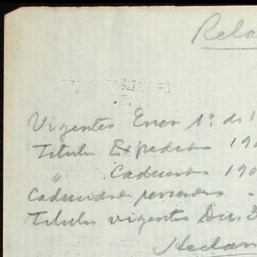 Rela
Vigentes Enero 1º. de 1
Titulos Expedidos 190
" Caducos 190
Caducidades
Titulos vigentes Dic. 3
Reclam